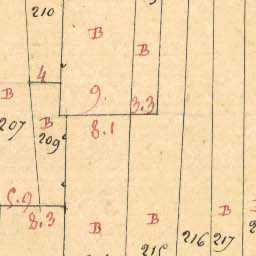 210
В
В
4
В
9.
3.3
207
В
209
8.1
5.9
8.3
В
В
В
215
216
217